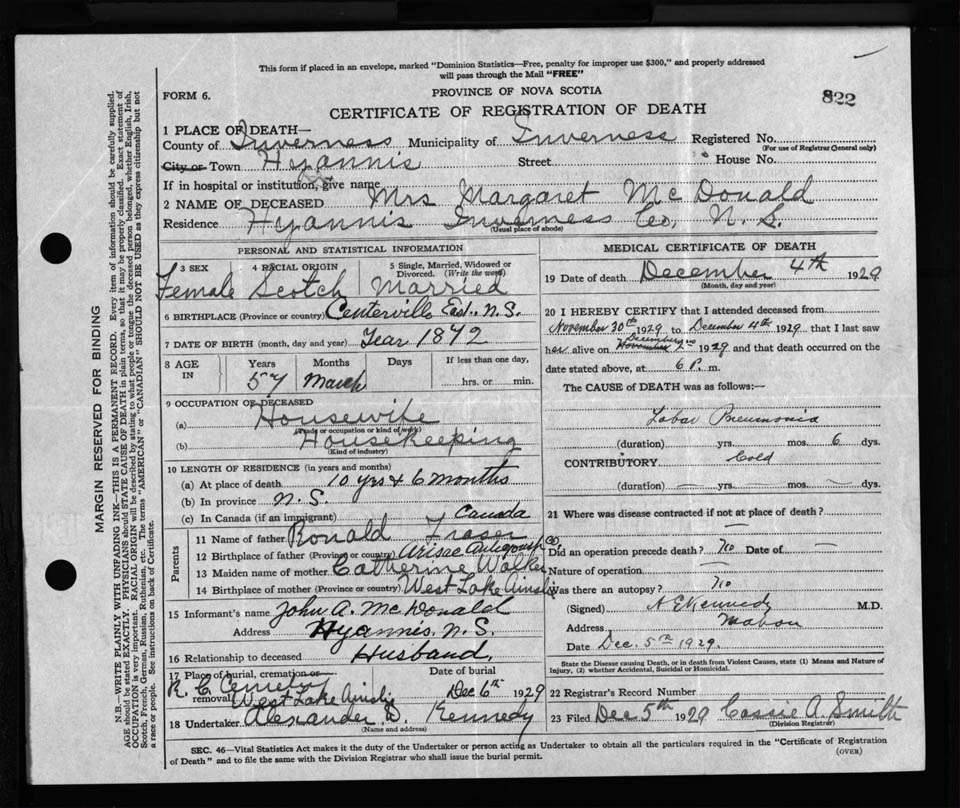 This form if placed in an envelope, marked "Dominion Statistics—Free, penalty for improper use $300," and properly addressed
will pass through the Mail "FREE"
FORM 6.
PROVINCE OF NOVA SCOTIA
822
CERTIFICATE OF REGISTRATION OF DEATH
1 PLACE OF DEATH—
County of Inverness Municipality of Inverness Registered No.
(For use of Registrar General only)
City or Town Hyannis Street House No.
If in hospital or institution, give name
2 NAME OF DECEASED Mrs Margaret McDonald
Residence Hyannis Inverness Co, N. S.
(Usual place of abode)
PERSONAL AND STATISTICAL INFORMATION
3 SEX 4 RACIAL ORIGIN 5 Single, Married, Widowed or Divorced. (Write the word)
Female Scotch Married
6 BIRTHPLACE (Province or country) Centerville East., N.S.
7 DATE OF BIRTH (month, day and year) Year 1872
8 AGE IN Years Months Days If less than one day,
57 March hrs. or min.
9 OCCUPATION OF DECEASED
(a) Housewife
(Trade or occupation or kind of work)
(b) Housekeeping
(Kind of industry)
10 LENGTH OF RESIDENCE (in years and months)
(a) At place of death 10 yrs & 6 months
(b) In province N. S
(c) In Canada (if an immigrant) Canada
Parents
11 Name of father Ronald Fraser
12 Birthplace of father (Province or country) Arisac Antigonish Co
13 Maiden name of mother Catherine Walker
14 Birthplace of mother (Province or country) West Lake Ainslie
15 Informant's name John A. McDonald
Address Hyannis, N.S.
16 Relationship to deceased Husband.
17 Place of burial, cremation or removal Date of burial
R. C. Cemetry
West Lake Ainslie Dec 6th 1929
18 Undertaker Alexander D. Kennedy
(Name and address)
MEDICAL CERTIFICATE OF DEATH
19 Date of death December 4th 1929
(Month, day and year)
20 I HEREBY CERTIFY that I attended deceased from
November 30th 1929 to December 4th 1929 that I last saw
December
her alive on November 2nd 1929 and that death occurred on
date stated above, at 6 P. m.
The CAUSE OF DEATH was as follows:
Lobar Pneumonia
(duration) yrs. mos. 6 dys.
CONTRIBUTORY Cold
(duration) — yrs. — mos. — dys.
21 Where was disease contracted if not at place of death?
—
Did an operation precede death? no Date of —
Nature of operation —
Was there an autopsy? no
(Signed) A E Kennedy M.D.
Address Mabou
Date Dec. 5th 1929.
State the Disease causing Death, or in death from Violent Causes, state (1) Means and Nature of
Injury, (2) whether Accidental, Suicidal or Homicidal.
22 Registrar's Record Number
23 Filed Dec 5th 1929 Cassie A. Smith
(Division Registrar)
SEC. 46—Vital Statistics Act makes it the duty of the Undertaker or person acting as Undertaker to obtain all the particulars required in the "Certificate of Registration
of Death" and to file the same with the Division Registrar who shall issue the burial permit.
(OVER)
MARGIN RESERVED FOR BINDING
N.B.—WRITE PLAINLY WITH UNFADING INK—THIS IS A PERMANENT RECORD. Every item of information should be carefully supplied.
AGE should be stated EXACTLY. PHYSICIANS should STATE CAUSE OF DEATH in plain terms, so that it may be properly classified. Exact statement of
OCCUPATION is very important. RACIAL ORIGIN will be described by stating to what people or tongue the deceased person belonged, whether English, Irish,
Scotch, French, German, Russian, Ruthenian, etc. The terms "AMERICAN" or "CANADIAN" SHOULD NOT BE USED as they express citizenship but not
a race or people. See instructions on back of Certificate.